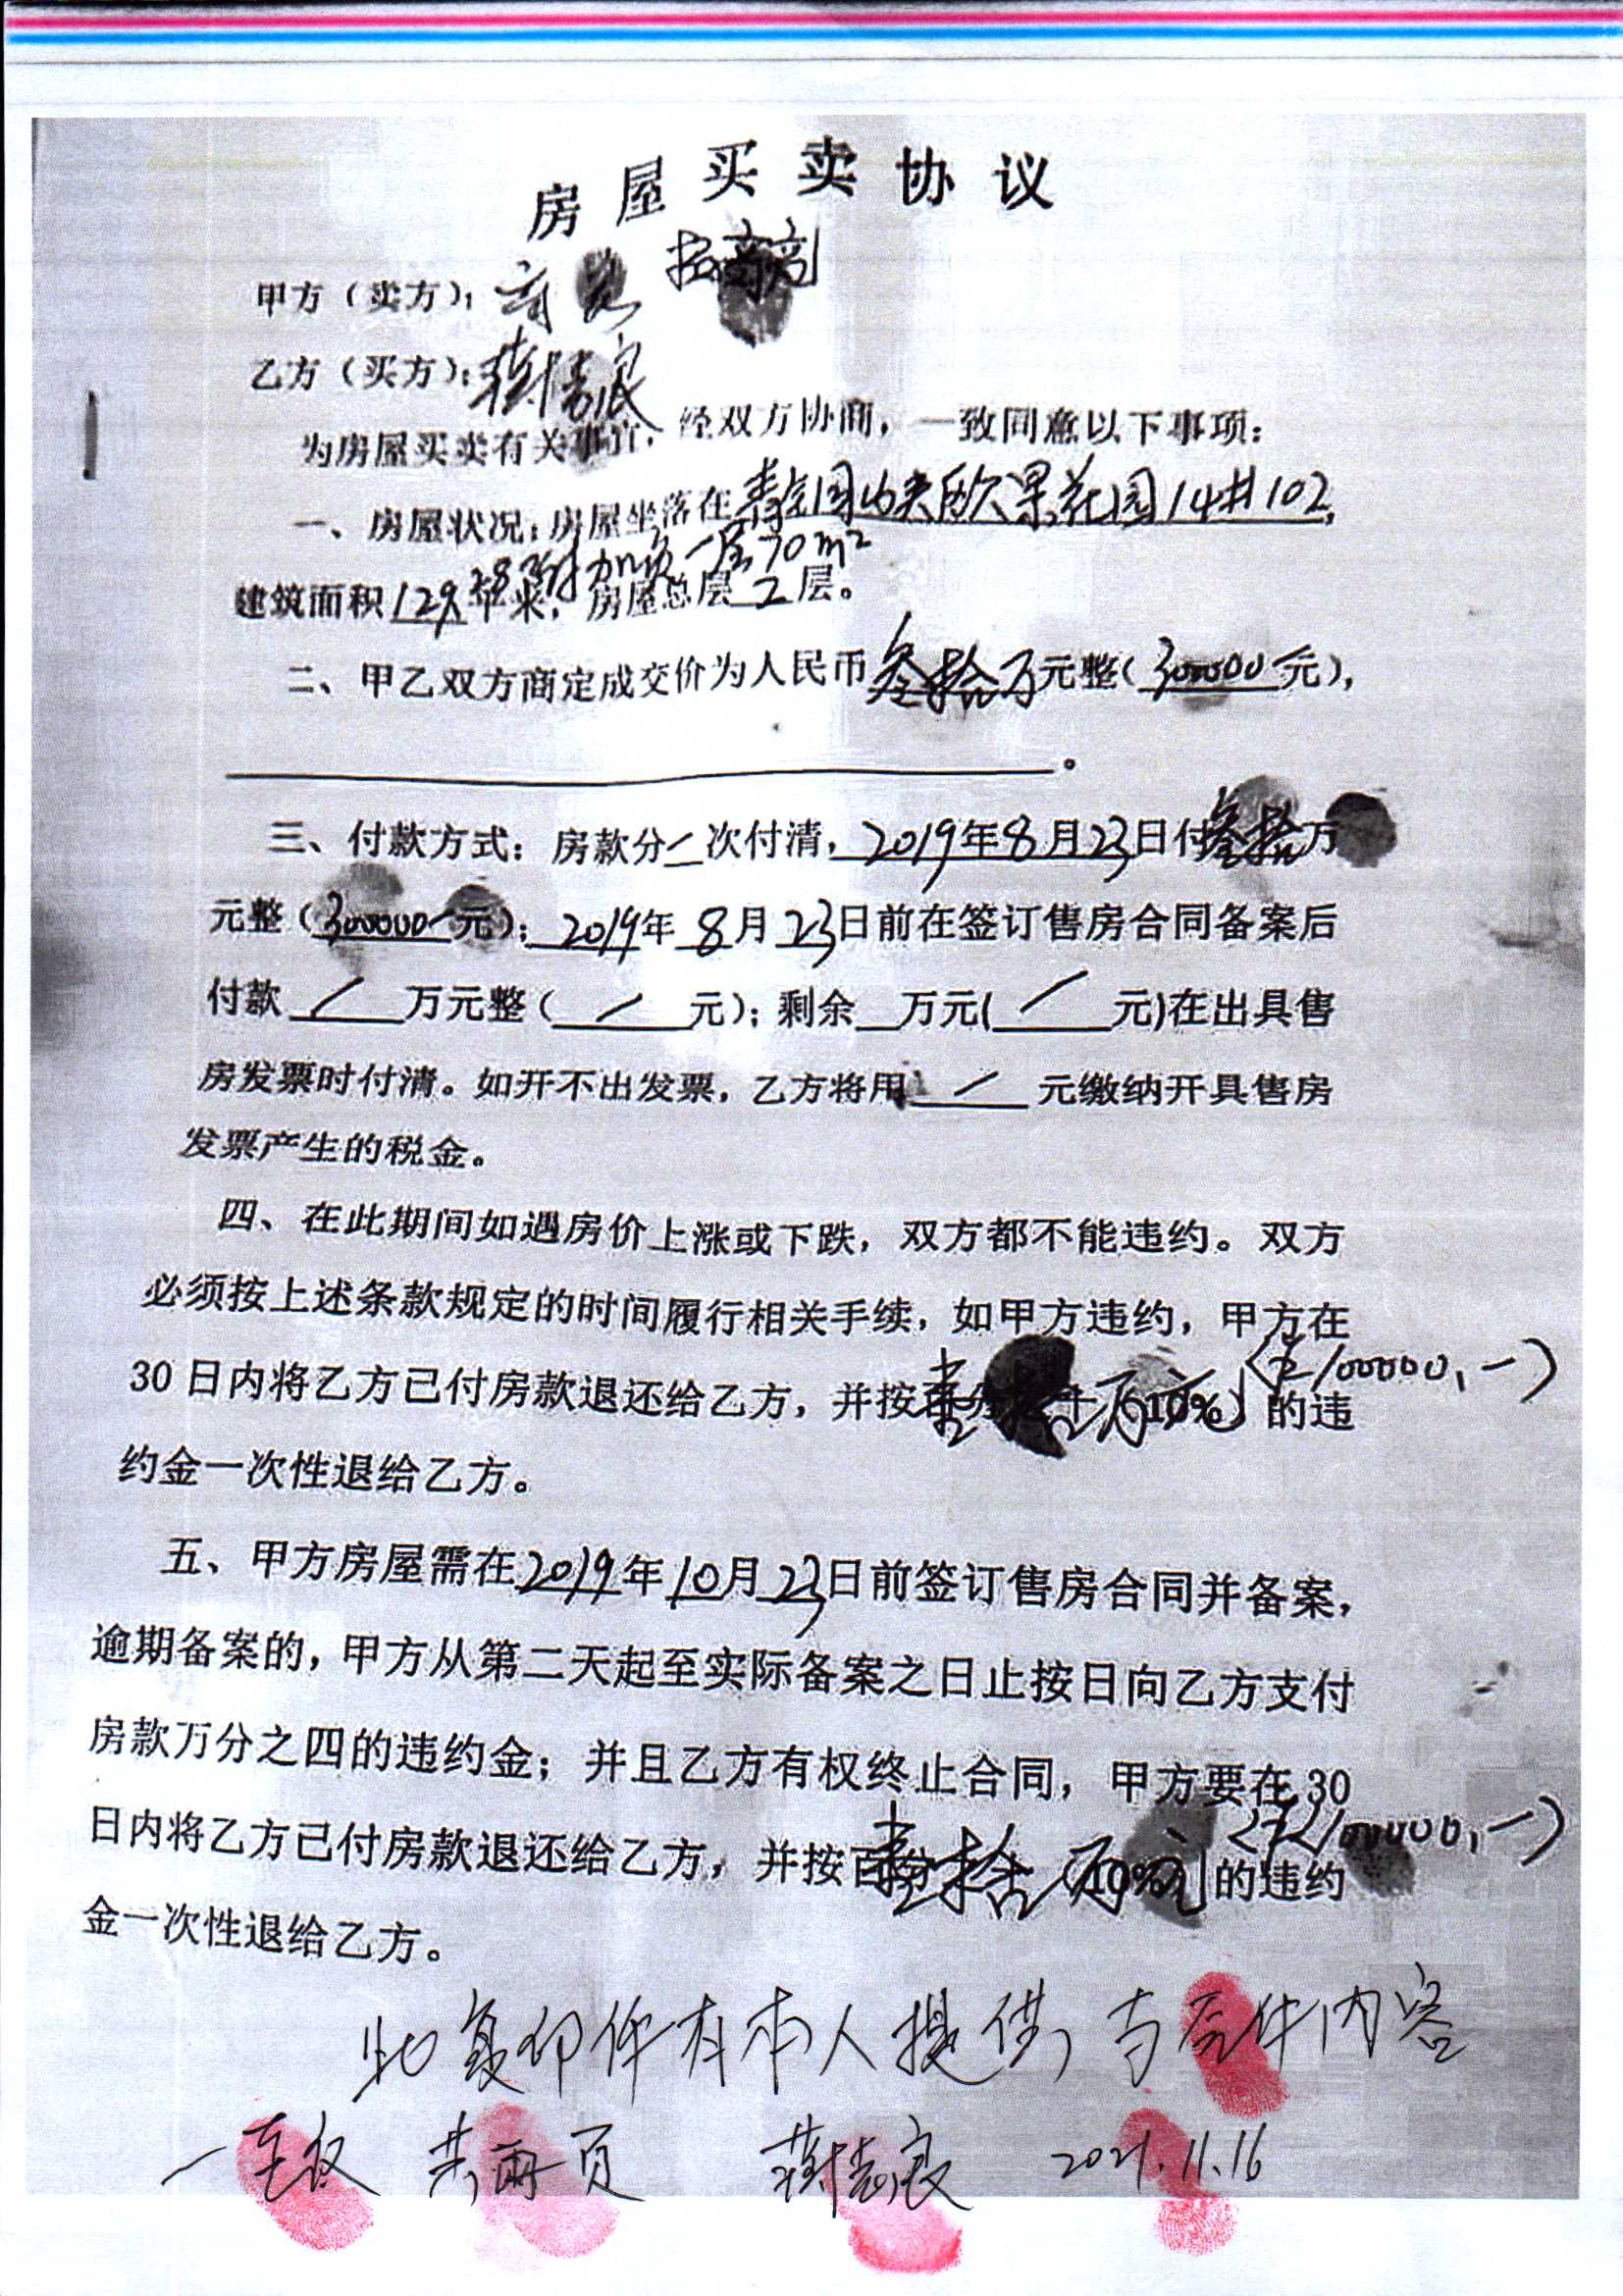 房屋买卖协议
甲方（卖方）：
乙方（买方）：蒋志良
为房屋买卖有关事宜，经双方协商，一致同意以下事项：
一、房屋状况：房屋坐落在 花园14#102，
附加负一层70m²
建筑面积129平米，房屋总层2层。
二、甲乙双方商定成交价为人民币叁拾万元整（300000元），
。
三、付款方式：房款分一次付清，2019年8月23日付叁拾万
元整（300000元）；2019年8月23日前在签订售房合同备案后
付款/万元整（/元）；剩余 万元(/元)在出具售
房发票时付清。如开不出发票，乙方将用/元缴纳开具售房
发票产生的税金。
四、在此期间如遇房价上涨或下跌，双方都不能违约。双方
必须按上述条款规定的时间履行相关手续，如甲方违约，甲方在
30日内将乙方已付房款退还给乙方，并按壹拾万元（10%）的违
约金一次性退给乙方。
五、甲方房屋需在2019年10月23日前签订售房合同并备案，
逾期备案的，甲方从第二天起至实际备案之日止按日向乙方支付
房款万分之四的违约金；并且乙方有权终止合同，甲方要在30
日内将乙方已付房款退还给乙方，并按百壹拾万元（10%）的违约
金一次性退给乙方。
此复印件有本人提供，与原件内容
一致 共两页 蒋志良 2021.11.16